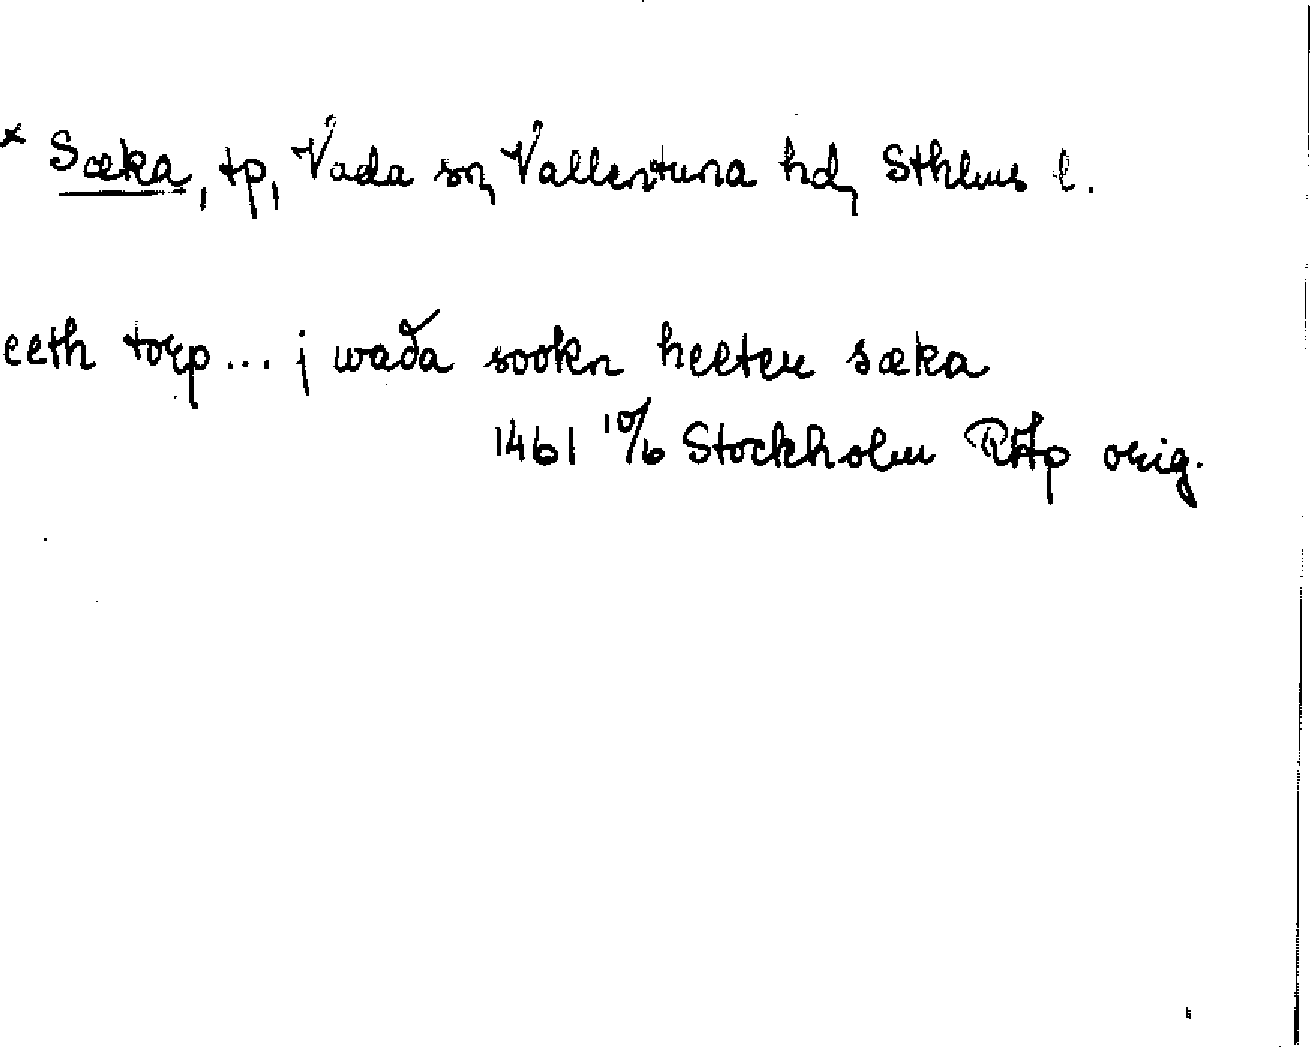 * Sæka, tp, Vada sn, Vallentuna hd, Sthlms l.
eeth torp... j wada sookn heeter sæka
1461 10/6 Stockholm RAp orig.